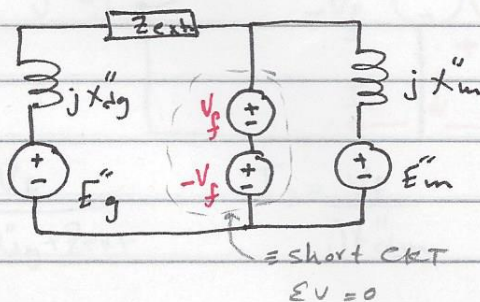 Zext
jX"dg
jX"m
Vf
-Vf
E"g
E"m
= short CKT
ΣV = 0